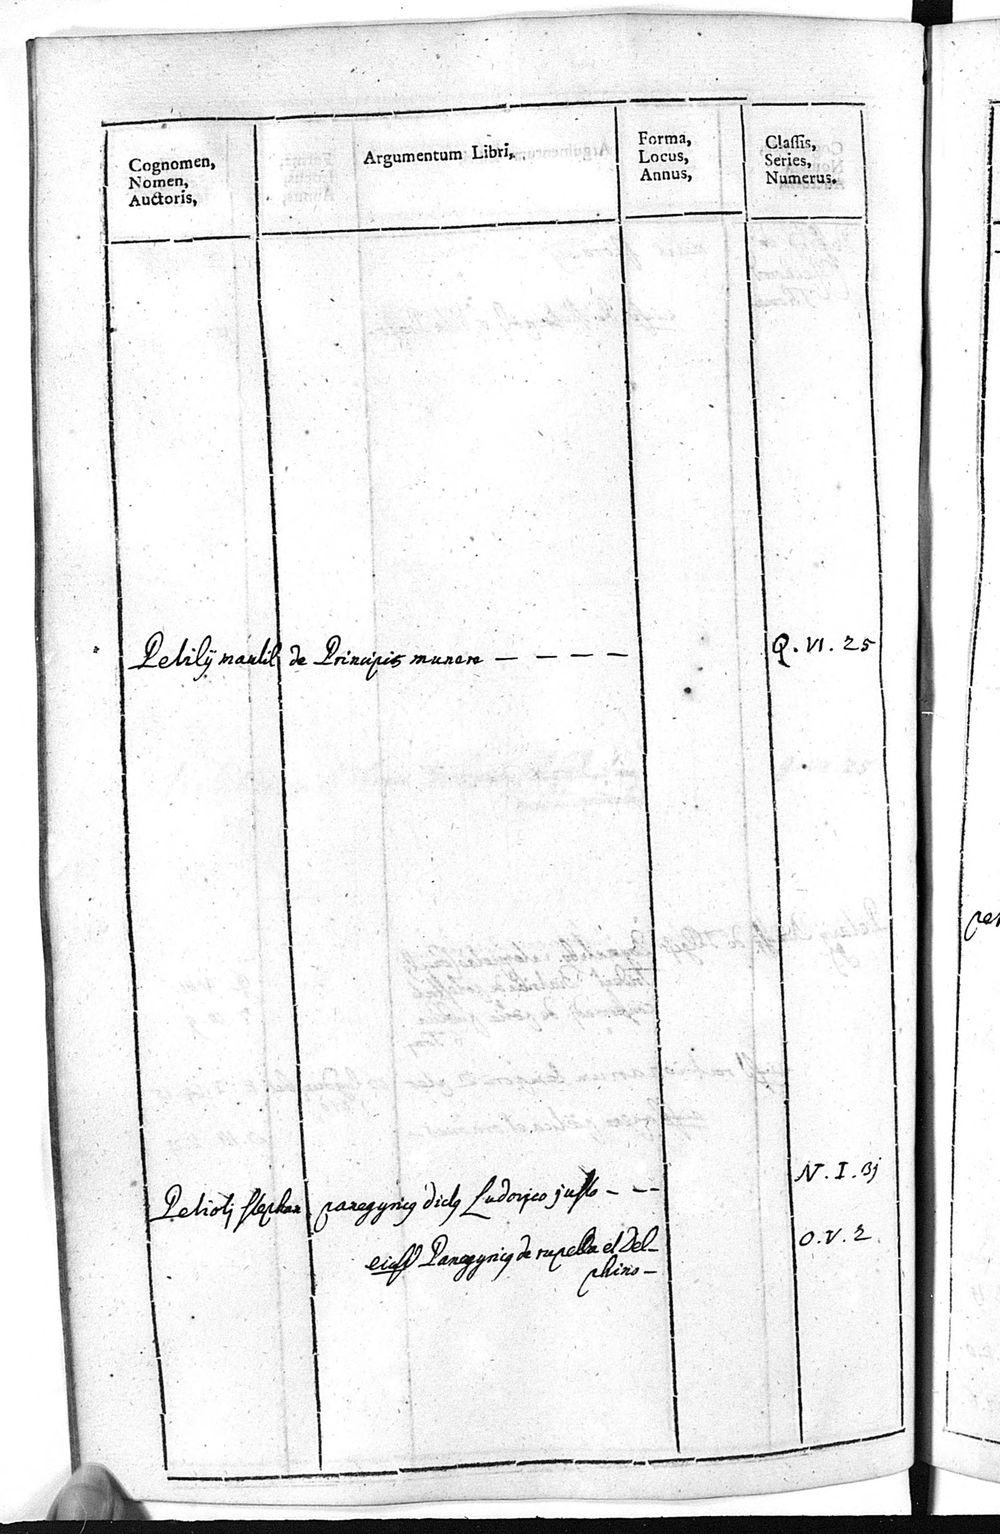 Cognomen,
Nomen,
Auctoris,
Argumentum Libri,
Forma,
Locus,
Annus,
Classis,
Series,
Numerus.
Petilij de Principis munere — — — — Q. VI. 25
Petioti stephan panegyricꝯ dictꝯ Ludovico justo - - - N. I. 31
eiusd Panegyricꝯ de rupella et Del- O. V. 2
phino -